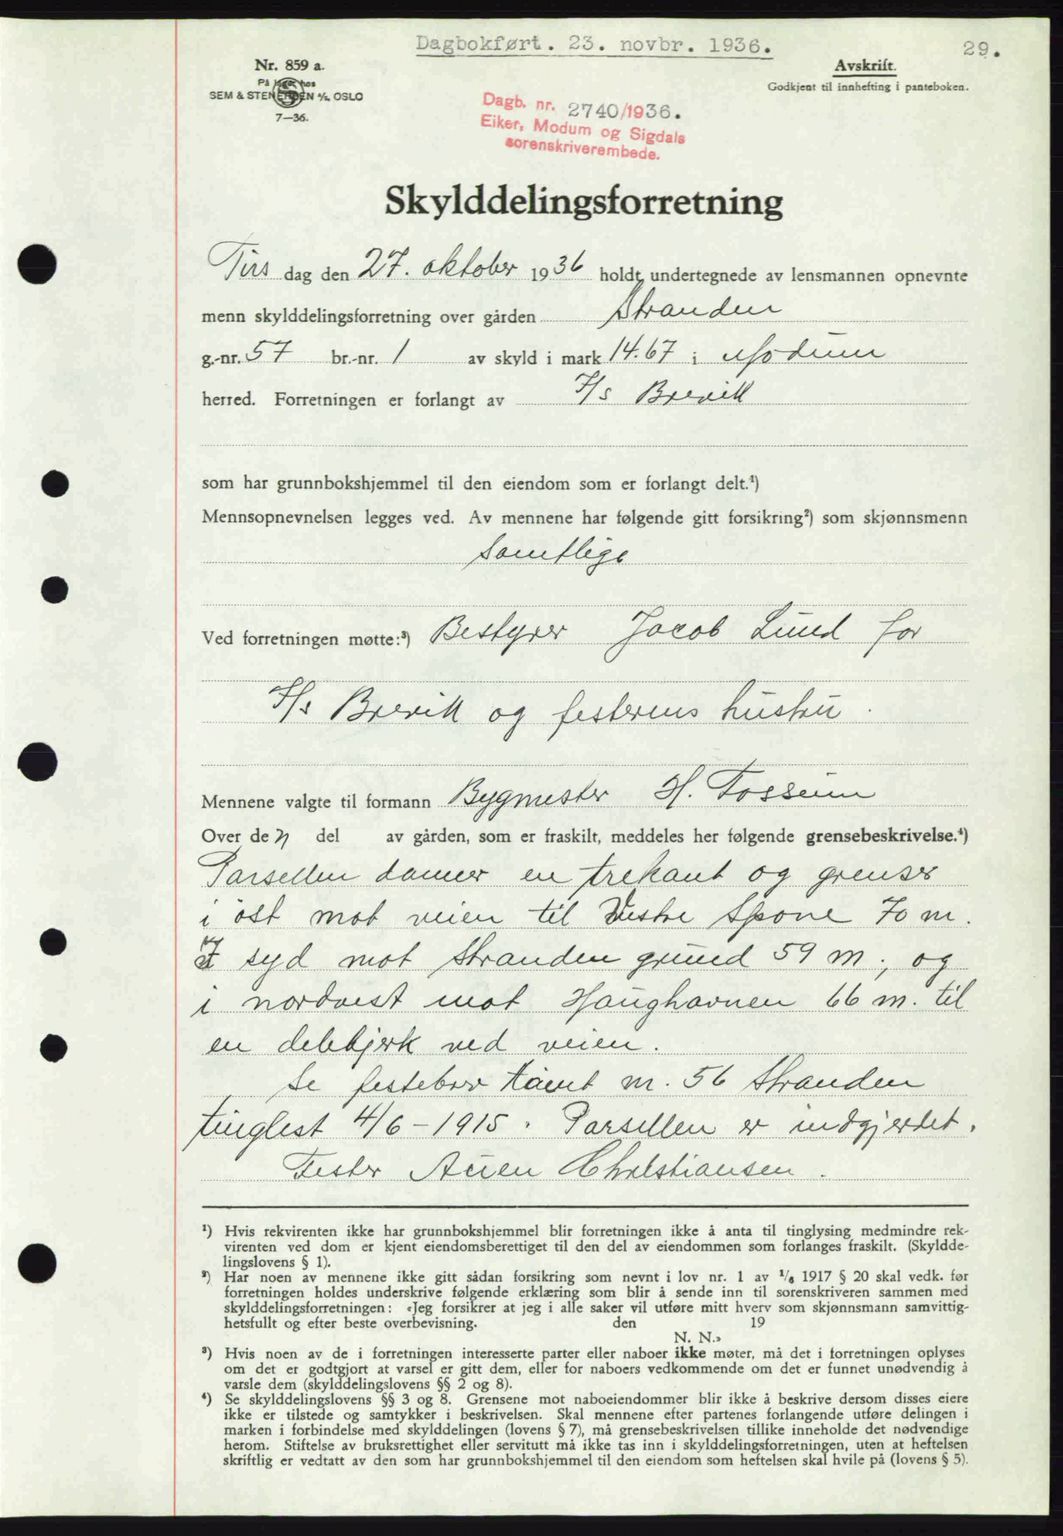 Dagbokført. 23. novbr. 1936.
29.
Nr. 859 a.
På lager hos
SEM & STENERSEN A/S, OSLO
7—36.
Avskrift.
Godkjent til innhefting i panteboken.
Dagb. nr. 2740/1936.
Eiker, Modum og Sigdals
sorenskriverembede.
Skylddelingsforretning
Tirs dag den 27. oktober 1936 holdt undertegnede av lensmannen opnevnte
menn skylddelingsforretning over gården Stranden
g.-nr. 57 br.-nr. 1 av skyld i mark 14.67 i Modum
herred. Forretningen er forlangt av F/s Brevik
som har grunnbokshjemmel til den eiendom som er forlangt delt.¹)
Mennsopnevnelsen legges ved. Av mennene har følgende gitt forsikring²) som skjønnsmenn
samtlige
Ved forretningen møtte:³) Bestyrer Jacob Lund for
F/s Brevik og festerens hustru.
Mennene valgte til formann Bygmester H. Fossum
Over den del av gården, som er fraskilt, meddeles her følgende grensebeskrivelse.⁴)
Parsellen danner en trekant og grenser
i öst mot veien til Vestre Spone 70 m.
I syd mot Stranden grund 59 m, og
i nordvest mot Haughavnen 66 m. til
en delebjerk ved veien.
Se festebrev tomt nr. 56 Stranden
tinglest 4/6 - 1915. Parsellen er indgjerdet.
Fester Christiansen.
¹) Hvis rekvirenten ikke har grunnbokshjemmel blir forretningen ikke å anta til tinglysing medmindre rek-
virenten ved dom er kjent eiendomsberettiget til den del av eiendommen som forlanges fraskilt. (Skyldde-
lingslovens § 1).
²) Har noen av mennene ikke gitt sådan forsikring som nevnt i lov nr. 1 av 1/6 1917 § 20 skal vedk. før
forretningen holdes underskrive følgende erklæring som blir å sende inn til sorenskriveren sammen med
skylddelingsforretningen: «Jeg forsikrer at jeg i alle saker vil utføre mitt hverv som skjønnsmann samvittig-
hetsfullt og efter beste overbevisning. den 19
N. N.»
³) Hvis noen av de i forretningen interesserte parter eller naboer ikke møter, må det i forretningen oplyses
om det er godtgjort at varsel er gitt dem, eller for naboers vedkommende om det er funnet unødvendig å
varsle dem (skylddelingslovens §§ 2 og 8).
⁴) Se skylddelingslovens §§ 3 og 8. Grensene mot naboeiendommer blir ikke å beskrive dersom disses eiere
ikke er tilstede og samtykker i beskrivelsen. Skal mennene efter partenes forlangende utføre delingen i
marken i forbindelse med skylddelingen (lovens § 7), må grensebeskrivelsen tillike inneholde det nødvendige
herom. Stiftelse av bruksrettighet eller servitutt må ikke tas inn i skylddelingsforretningen, uten at heftelsen
skriftlig er vedtatt av den som har grunnbokshjemmel til den eiendom som heftelsen skal hvile på (lovens § 5).